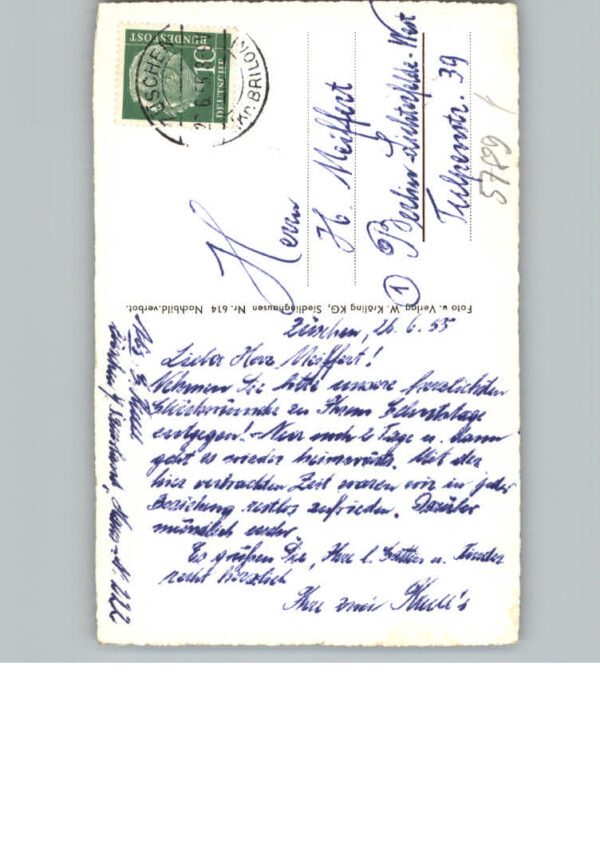 DEUTSCHE
BUNDESPOST
10
ÜSCHEN
(KR. BRILON)
Herrn
H. Meiffert
① Berlin-Lichterfelde-West
Tulpenstr. 39
5789
Foto u. Verlag W. Kröling KG, Siedlinghausen Nr. 614 Nachbild. verbot.
Züschen, 26.6.55
Lieber Herr Meiffert!
Nehmen Sie bitte unsere herzlichsten
Glückwünsche zu Ihrem Geburtstage
entgegen! Nur noch 2 Tage u. dann
geht es wieder heimwärts. Mit der
hier verbrachten Zeit waren wir in jeder
Beziehung restlos zufrieden. Darüber
mündlich mehr.
Es grüßen Sie, Ihre l. Gattin u. Kinder
recht herzlich
Ihre zwei
Züschen / Sauerland, Haus-Nr. 222